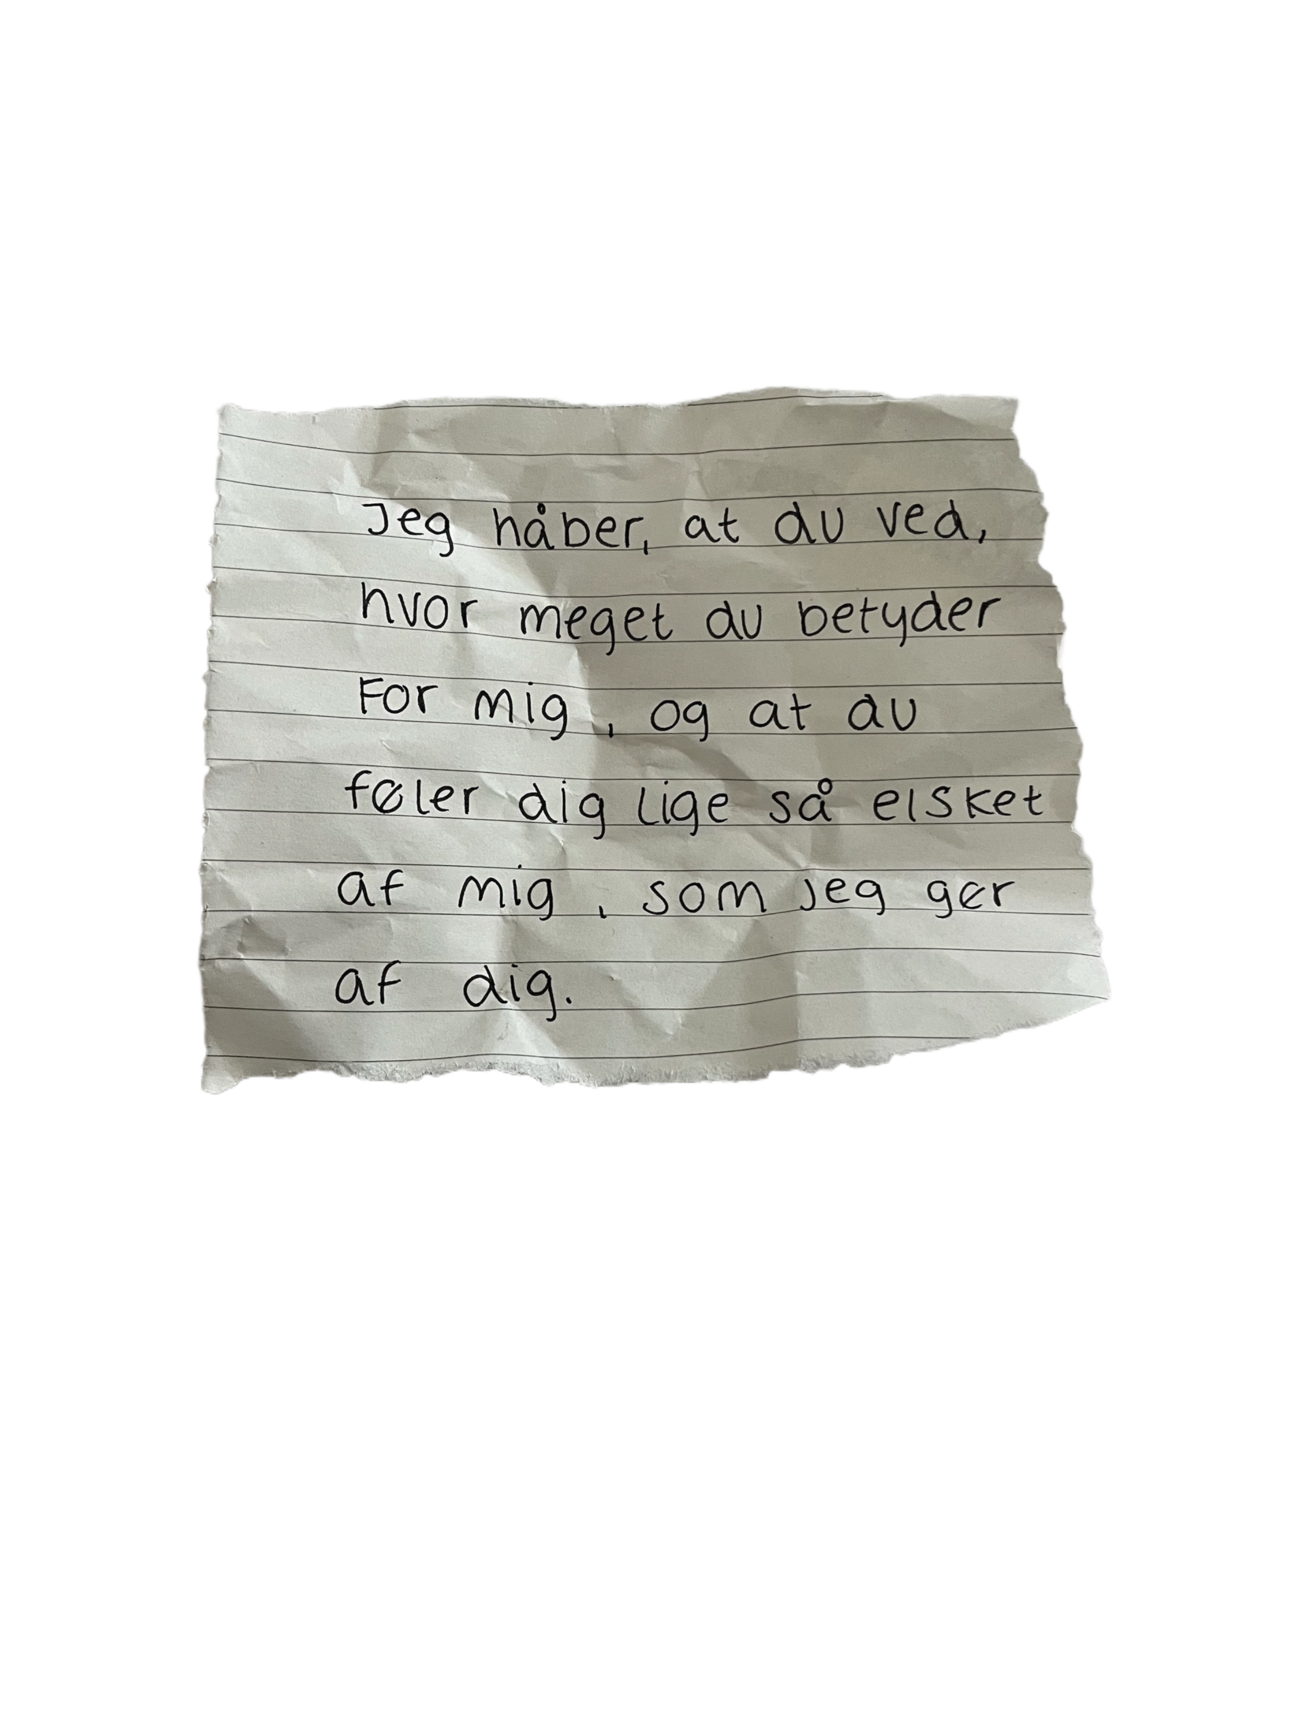 Jeg håber, at du ved,
hvor meget du betyder
For mig, og at du
føler dig lige så elsket
af mig, som jeg gør
af dig.